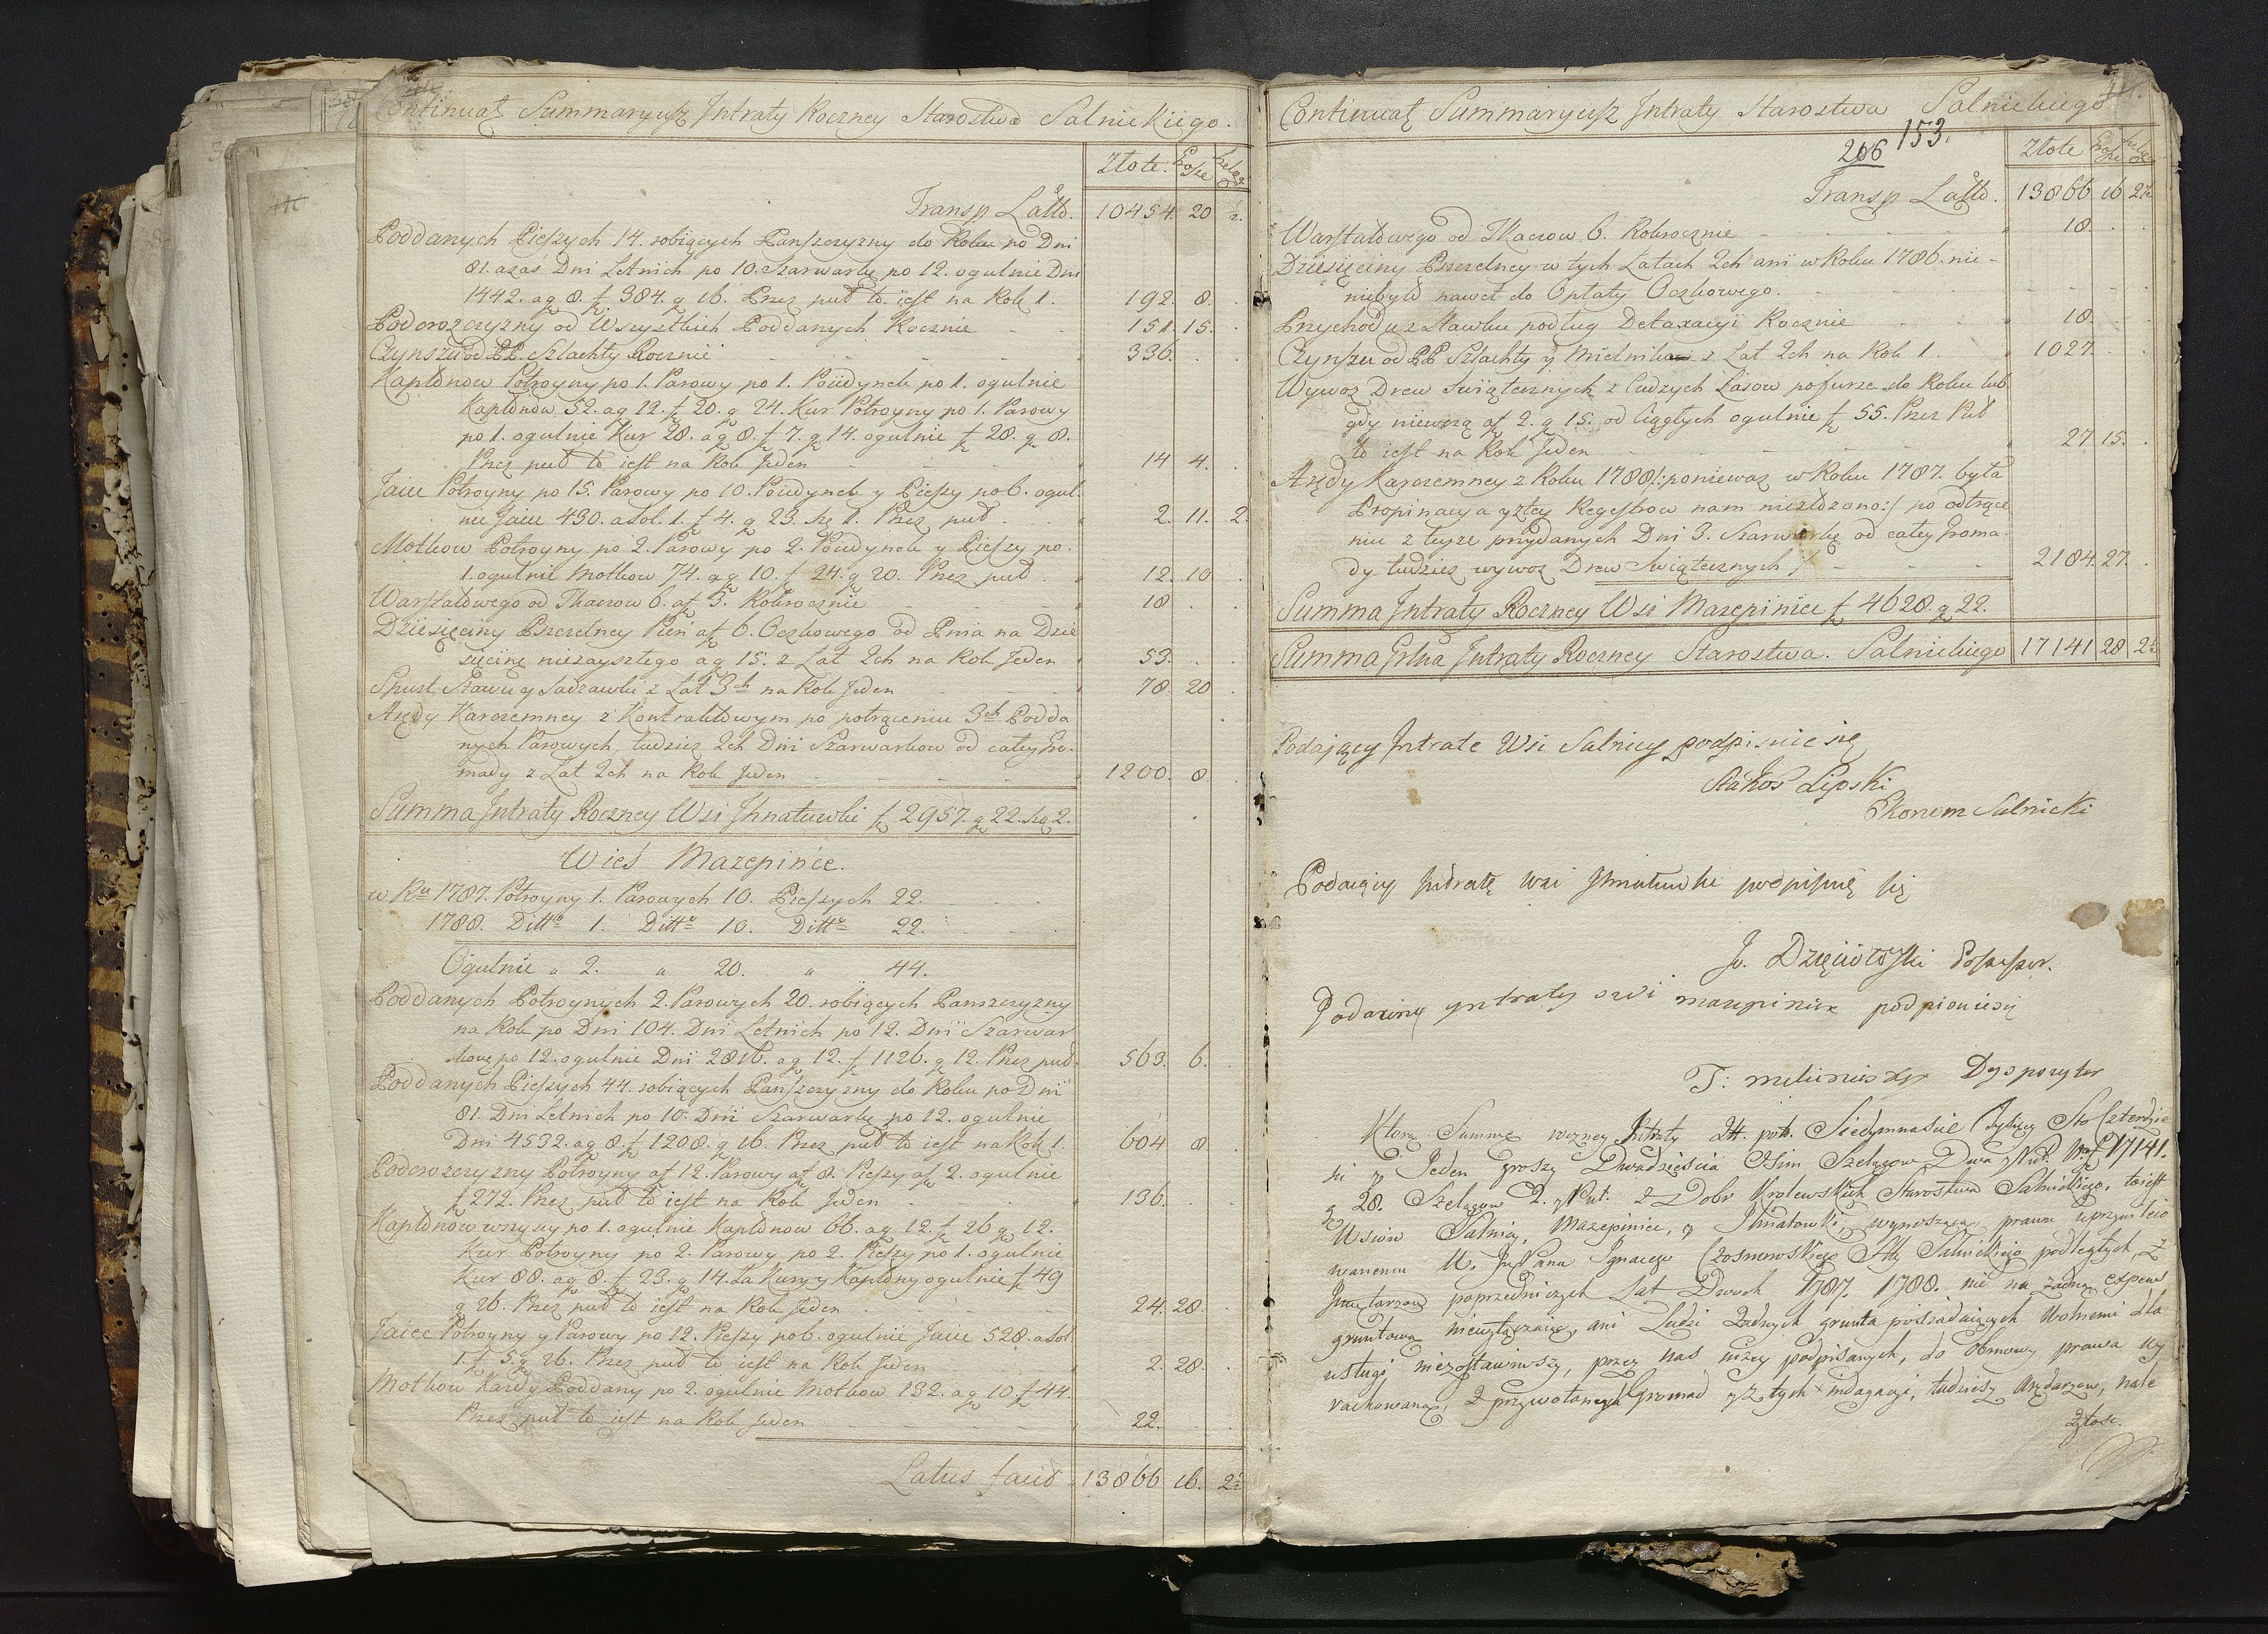 Continuat Summaryusz Jntraty Roczney Starostwa Salnickiego.
Złote. Grosze Szeląg
Transp Latto. 10454. 20 ½.
Poddanych Pieszych 14. robiących Panszczyzny do Roku po Dni
81. azaś Dni Letnich po 10. Szarwarku po 12. ogulnie Dni
1442. a g 8. f 384. g 16. Przez puł to iest na Rok 1. 192. 8.
Podorozczyzny od Wszystkich Poddanych Rocznie 151. 15.
Czynszu od PP. Szlachty Rocznie 336.
Kapłonow Potroyny po 1. Parowy po 1. Poiidynek po 1. ogulnie
Kapłonow 52. a g 12. f 20. g 24. Kur Potroyny po 1. Parowy
po 1. ogulnie Kur 28. a g 8. f 7. g 14. ogulnie f 28. g 8.
Przez puł to iest na Rok Jeden 14 4.
Jaiec Potroyny po 15. Parowy po 10. Poiedynek y Pieszy po 6. ogul-
nie Jaiec 430. a sol. 1. f 4. g 23. sz 1. Przez puł 2. 11. 2.
Motkow Potroyny po 2. Parowy po 2. Poiedynek y Pieszy po
1. ogulnie Motkow 74. a g 10. f 24. g 20. Przez puł 12. 10
Warstatowego od Tkaczow 6. a f 3. Rokrocznie 18
Dziesięciny Pszczelney Pień a f 6. Oczkowego od Pnia na Dzie
sięcinę niezaysztego a g 15. z Lat 2ch na Rok Jeden 53.
Spust Stawu y Sadzawki z Lat 3ch na Rok Jeden 78. 20
Arędy Karczemney z Kontraktowym po potrąceniu 3ch Podda
nych Parowych, tudziez 2ch Dni Szarwarkow od całey Gro-
mady z Lat 2ch na Rok Jeden 1200. 8
Summa Jntraty Roczney Wsi Jhnatuwki f 2957. g 22. sz 2.
Wieś Mazepińce.
w Ru 1787. Potroyny 1. Parowych 10. Pieszych 22.
1788. Ditto 1. Ditto 10. Ditto 22.
Ogulnie „ 2. „ 20. „ 44.
Poddanych Potroynych 2. Parowych 20. robiących Panszczyzny
na Rok po Dni 104. Dni Letnich po 12. Dni Szarwar
kowe po 12. ogulnie Dni 2816. a g 12. f 1126. g 12. Przez puł. 563. 6.
Poddanych Pieszych 44. robiących Panszczyzny do Roku po Dni
81. Dni Letnich po 10. Dni Szarwarku po 12. ogulnie
Dni 4532. a g 8. f 1208. g 16. Przez puł to iest na Rok 1. 604. 8
Podorozczyzny Potroyny a f 12. Parowy a f 8. Pieszy a f 2. ogulnie
f 272. Przez puł to iest na Rok Jeden 136.
Kapłonow wszyscy po 1. ogulnie Kapłonow 66. a g 12. f 26 g 12.
Kur Potroyny po 2. Parowy po 2. Pieszy po 1. ogulnie
Kur 88. a g 8. f 23. g 14. Za Kury y Kapłony ogulnie f 49
g 26. Przez puł to iest na Rok Jeden 24. 28.
Jaiec Potroyny y Parowy po 12. Pieszy po 6. ogulnie Jaiec 528. a sol.
1. f 5. g 26. Przez puł to iest na Rok Jeden 2. 28.
Motkow Kazdy Poddany po 2. ogulnie Motkow 132. a g 10 f 44.
Przez puł to iest na Rok Jeden 22.
Latus facit 13866 16. 2½
Continuat Summaryusz Jntraty Starostwa Salnickiego
206 153.
Złote Grosze Szeląg
Transp Latto. 13866 16 2½
Warstatowego od Tkaczow 6. Rokrocznie 18.
Dziesięciny Pszczelney w tych Latach 2ch ani w Roku 1786. nie-
niebyło nawet do Opłaty Oczkowego.
Przychodu z Stawku podług Detaxacyi Rocznie 18.
Czynszu od PP Szlachty y Mielnikow z Lat 2ch na Rok 1. 1027.
Wywoz Drew Swiątecznych z Cudzych Lasow pofurze do Roku lub
gdy niewozą a f 2. g 15. od Ciągłych ogulnie f 55. Przez Puł
to iest na Rok Jeden 27 15.
Arędy Karczemney z Roku 1788 /:poniewaz w Roku 1787. była
Propinacya y ztey Regestrow nam niezłozono:/ po odtrące
niu z teyze przydanych Dni 3. Szarwarku od całey Groma-
dy tudziez wywoz Drew Swiątecznych 2184. 27.
Summa Jntraty Roczney Wsi Mazepiniec f 4628. g 22.
Summa Grlna Jntraty Roczney Starostwa. Salnickiego 17141 28 2½
Podaiący Jntrate Wsi Salnicy podpisuie się
Lipski
Ekonom Salnicki
Podaiący Jntratę wsi Jhnatuwki podpisuię się
J. Dzięciołoski Possessor.
Podaiący yntraty wsi mazepiniec podpisuiesię
T: Dyspozytor
Ktora Summę roczney Jntraty Zł. pol. Siedymnascie Tysięcy Sto Czterdzie
sci y Jeden groszy Dwadziescia Osim Szelągow Dwa y Puł. f 17141.
g 28. Szelągow 2. y Puł. z Dobr Krolewskich Starostwa Salnickiego, toiest
Wsiow Salnicy, Mazepiniec, y Jhnatowki wynoszącą prawu uprzywileio
wanemu W. Jp Pana Jgnacego Czosnowskiego Stty Salnickiego podległych, z
Jnwentarzow poprzedniczych Lat Dwoch 1787. 1788. nic na zadną expens
gruntową niewyłączaiąc, ani Ludzi Zadnych grunta posiadaiących Wolnemi dla
usługi niezostawiwszy, przez nas nizey podpisanych, do Obmowy prawa wy
rachowaną, z przywołanych Gromad y z tych indagacyi, tudziesz Arędarzow, nale
zytosc.